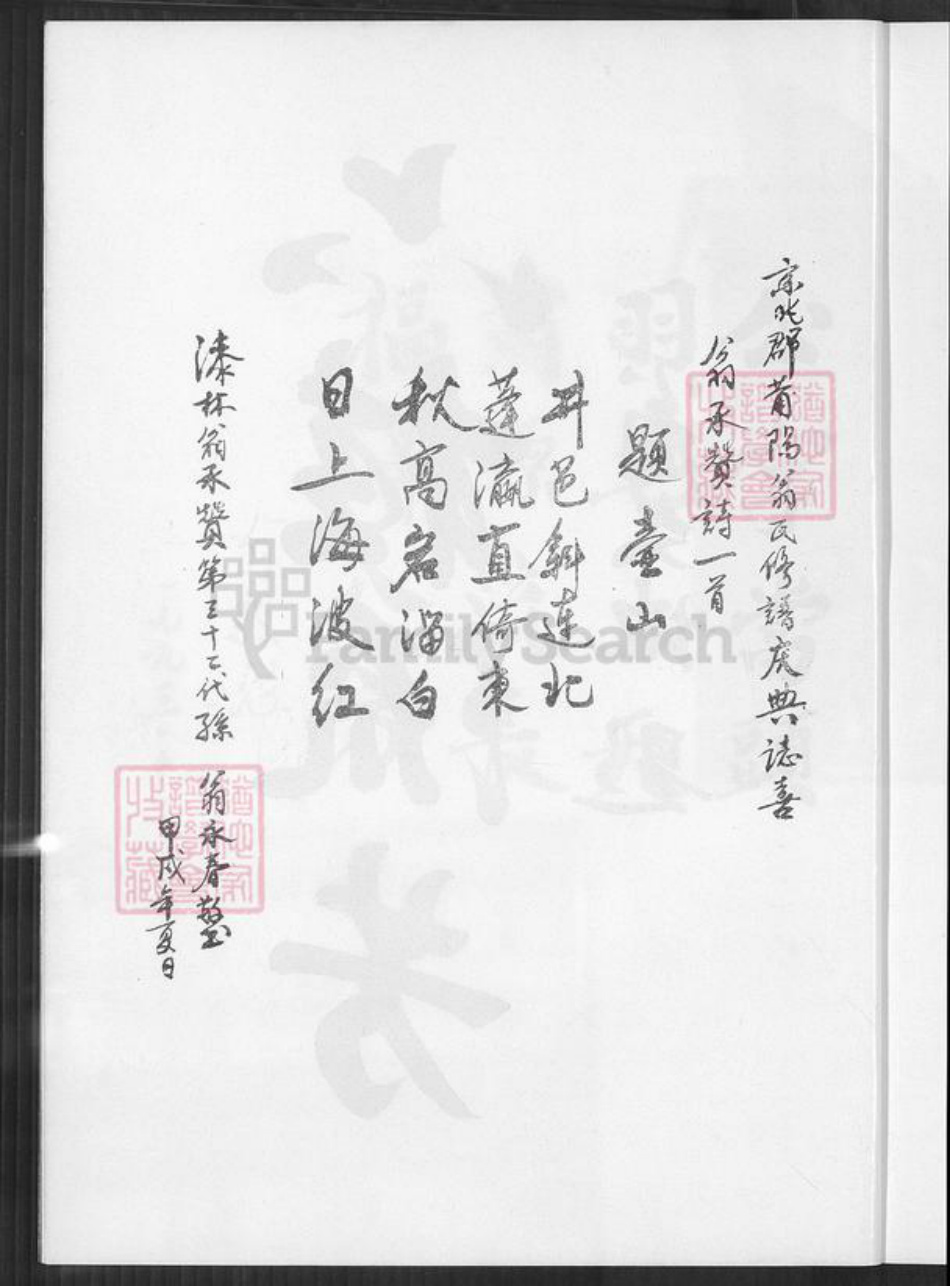 京兆郡莆陽翁氏修譜慶典誌喜
翁承贊詩一首
題壺山
井邑斜連北
蓬瀛直倚東
秋高岩溜白
日上海波紅
漆林翁承贊第三十二代孫
翁永春敬書
甲戌年夏日
猶他家譜學會收藏
猶他家譜學會收藏
FamilySearch